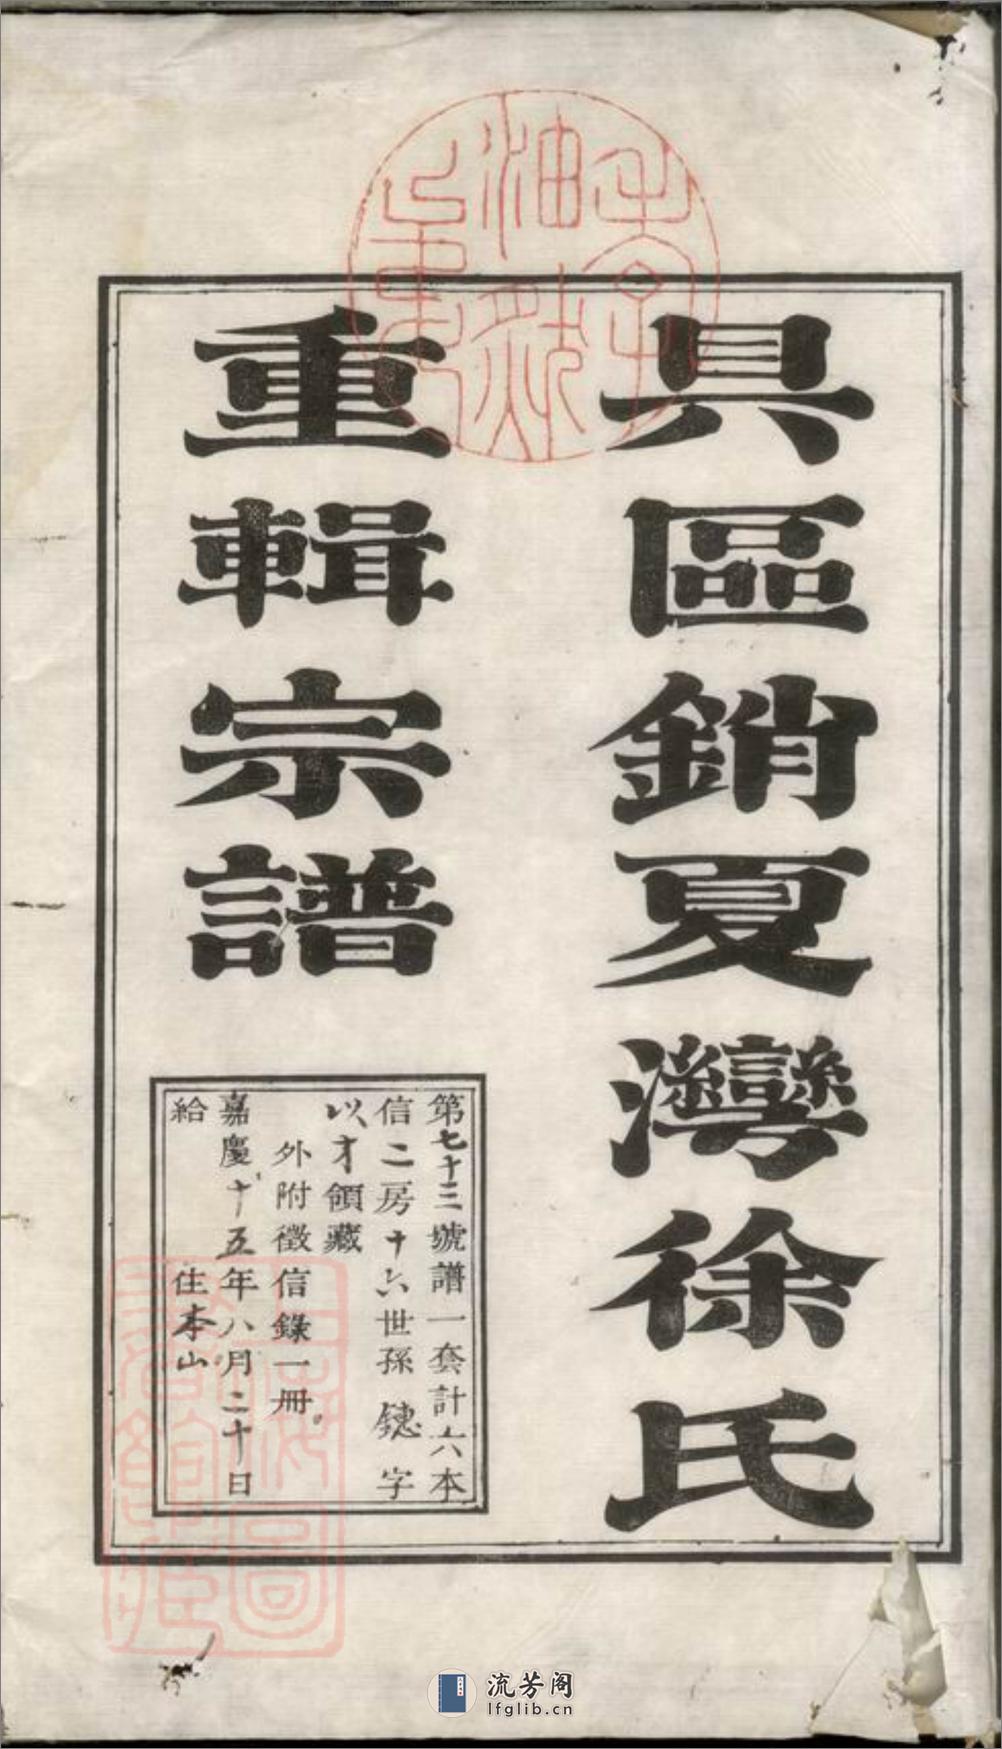 具區銷夏灣徐氏
重輯宗譜
第七十三號譜一套計六本
信二房十六世孫鏸字
以才領藏
外附徵信錄一冊
嘉慶十五年八月二十日
給 住本山
流芳阁
lfglib.cn